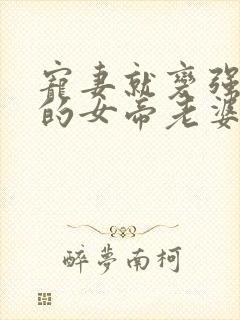 寵妻就變强
的女帝老婆
醉夢南柯